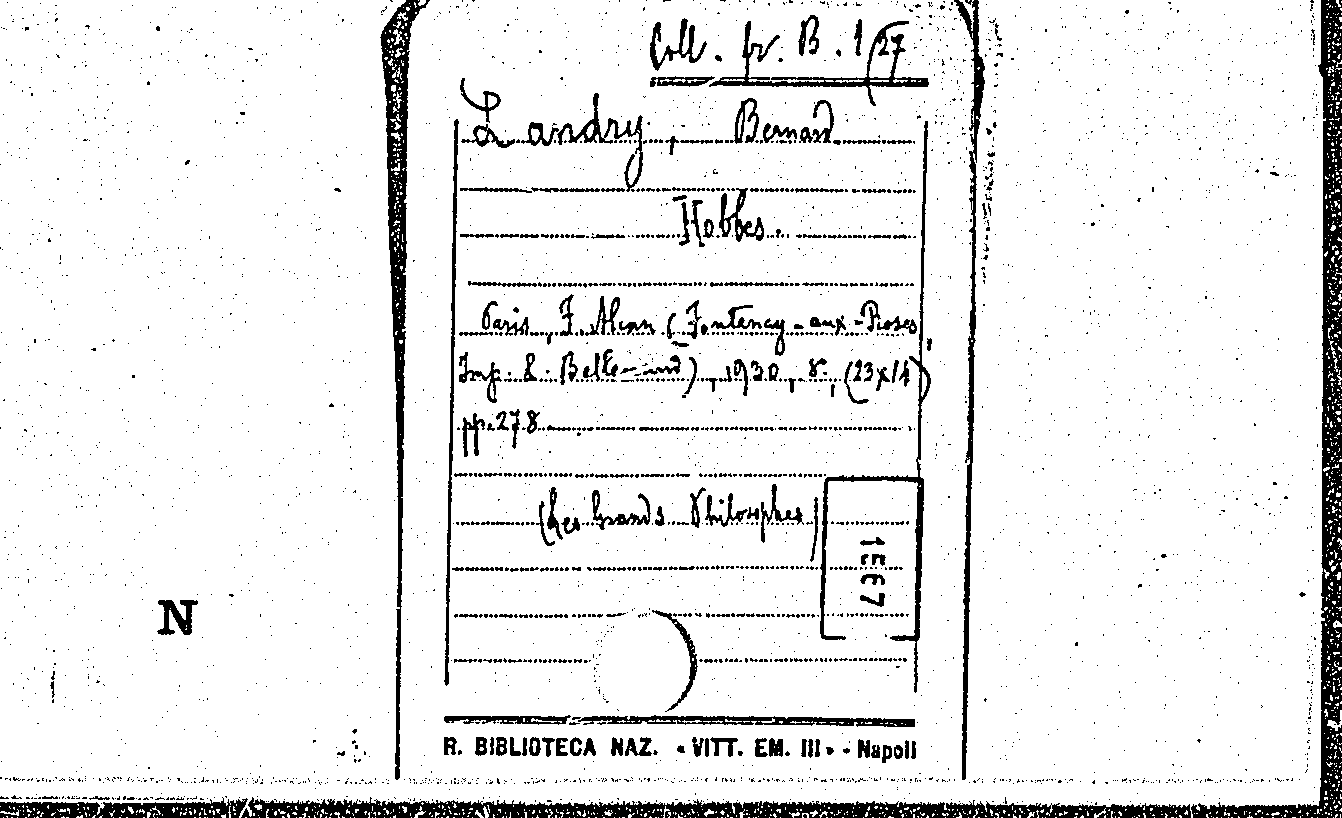 Coll. fr. B. 1/27
Landry, Bernard
Hobbes.
Paris, F. Alcan (Fontenay-aux-Roses,
Imp. L. Bellenand), 1930, 8°, (23x14)
pp. 278
(Les Grands Philosophes)
1567
N
R. BIBLIOTECA NAZ. « VITT. EM. III » - Napoli